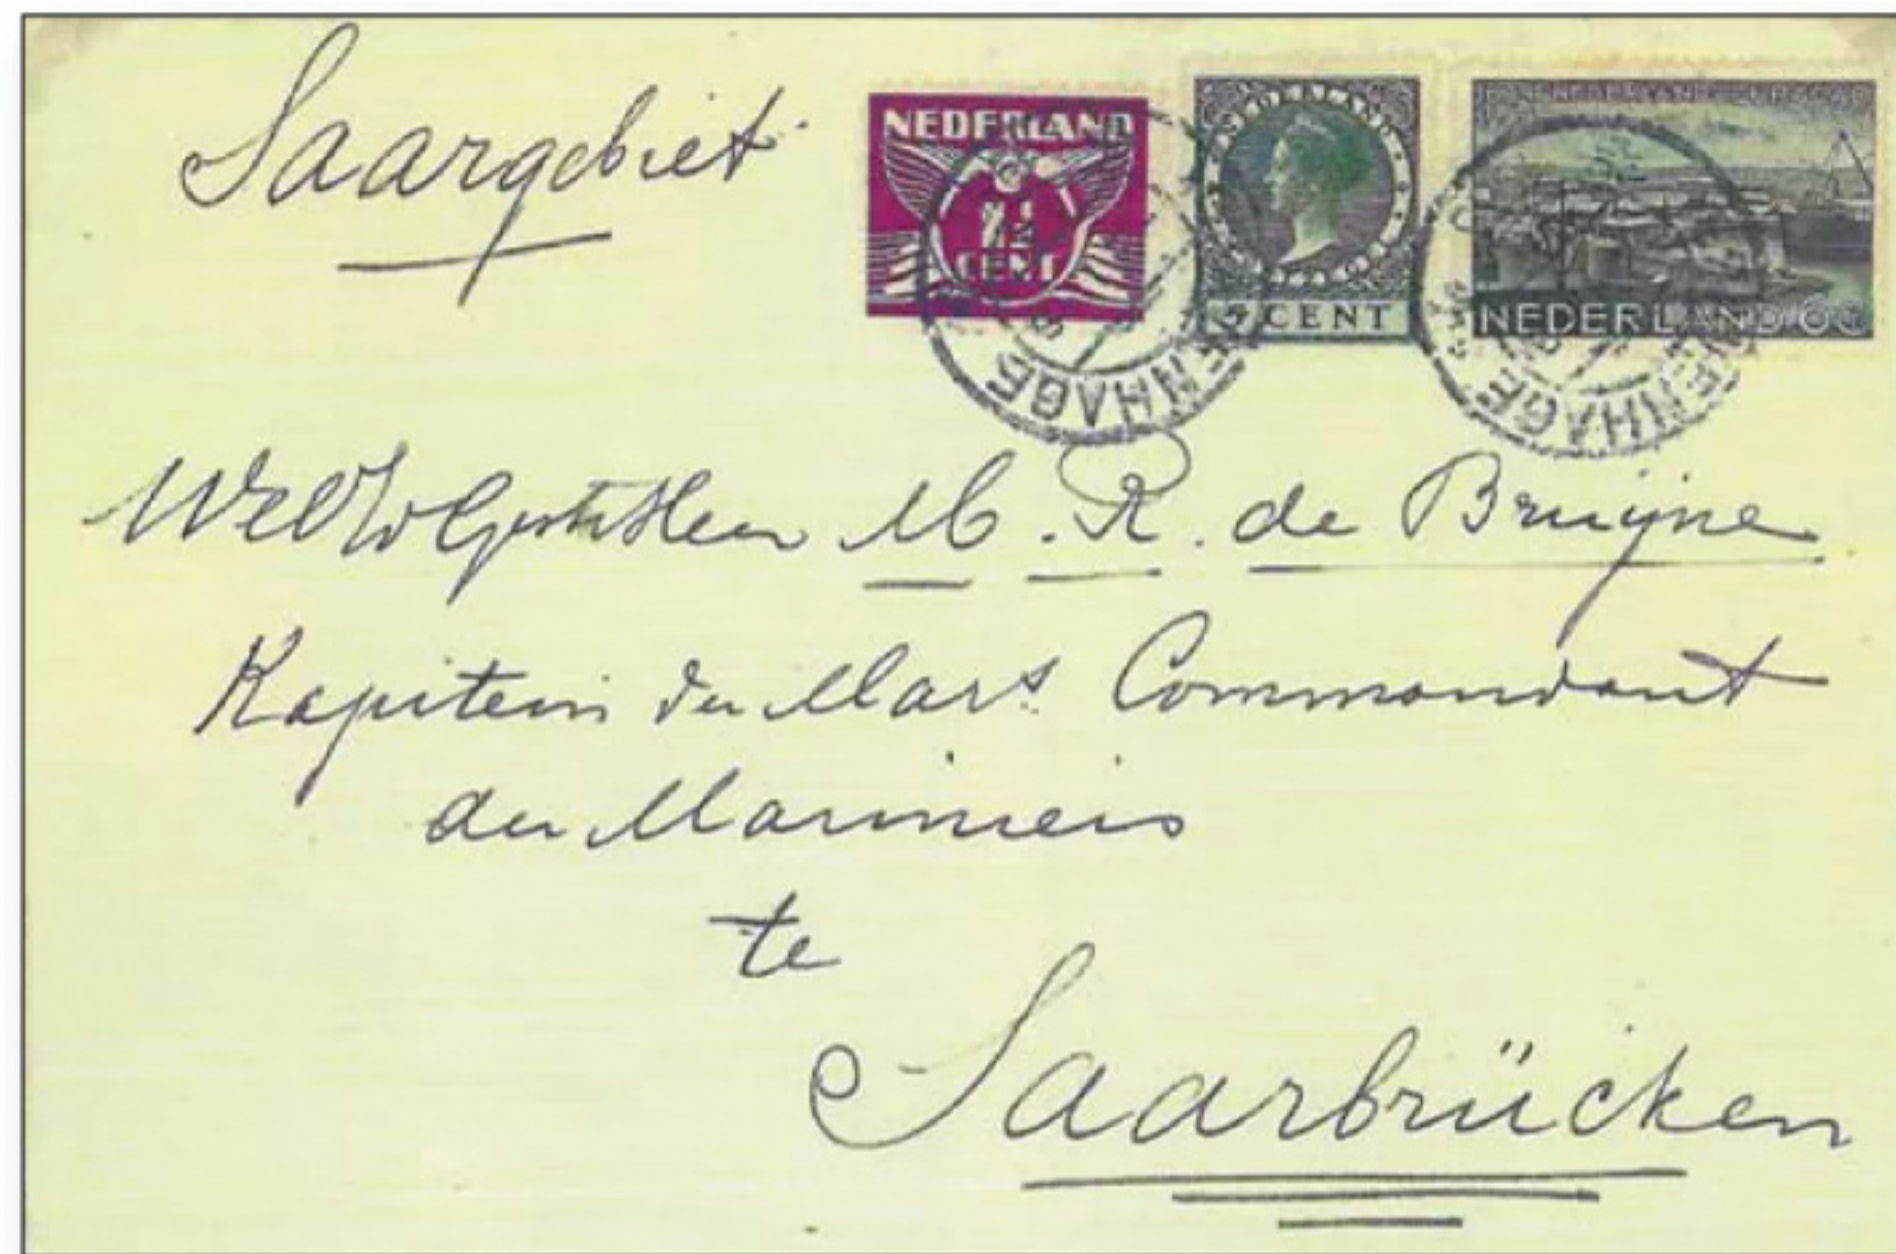 Saargebiet
NEDERLAND
1½
CENT
NEDERLAND
5 CENT
NEDERLAND 6c
'S GRAVENHAGE
'S GRAVENHAGE
WelEdelGestr Heer M. R. de Bruijne
Kapitein der Mars Commandant
der Mariniers
te
Saarbrücken